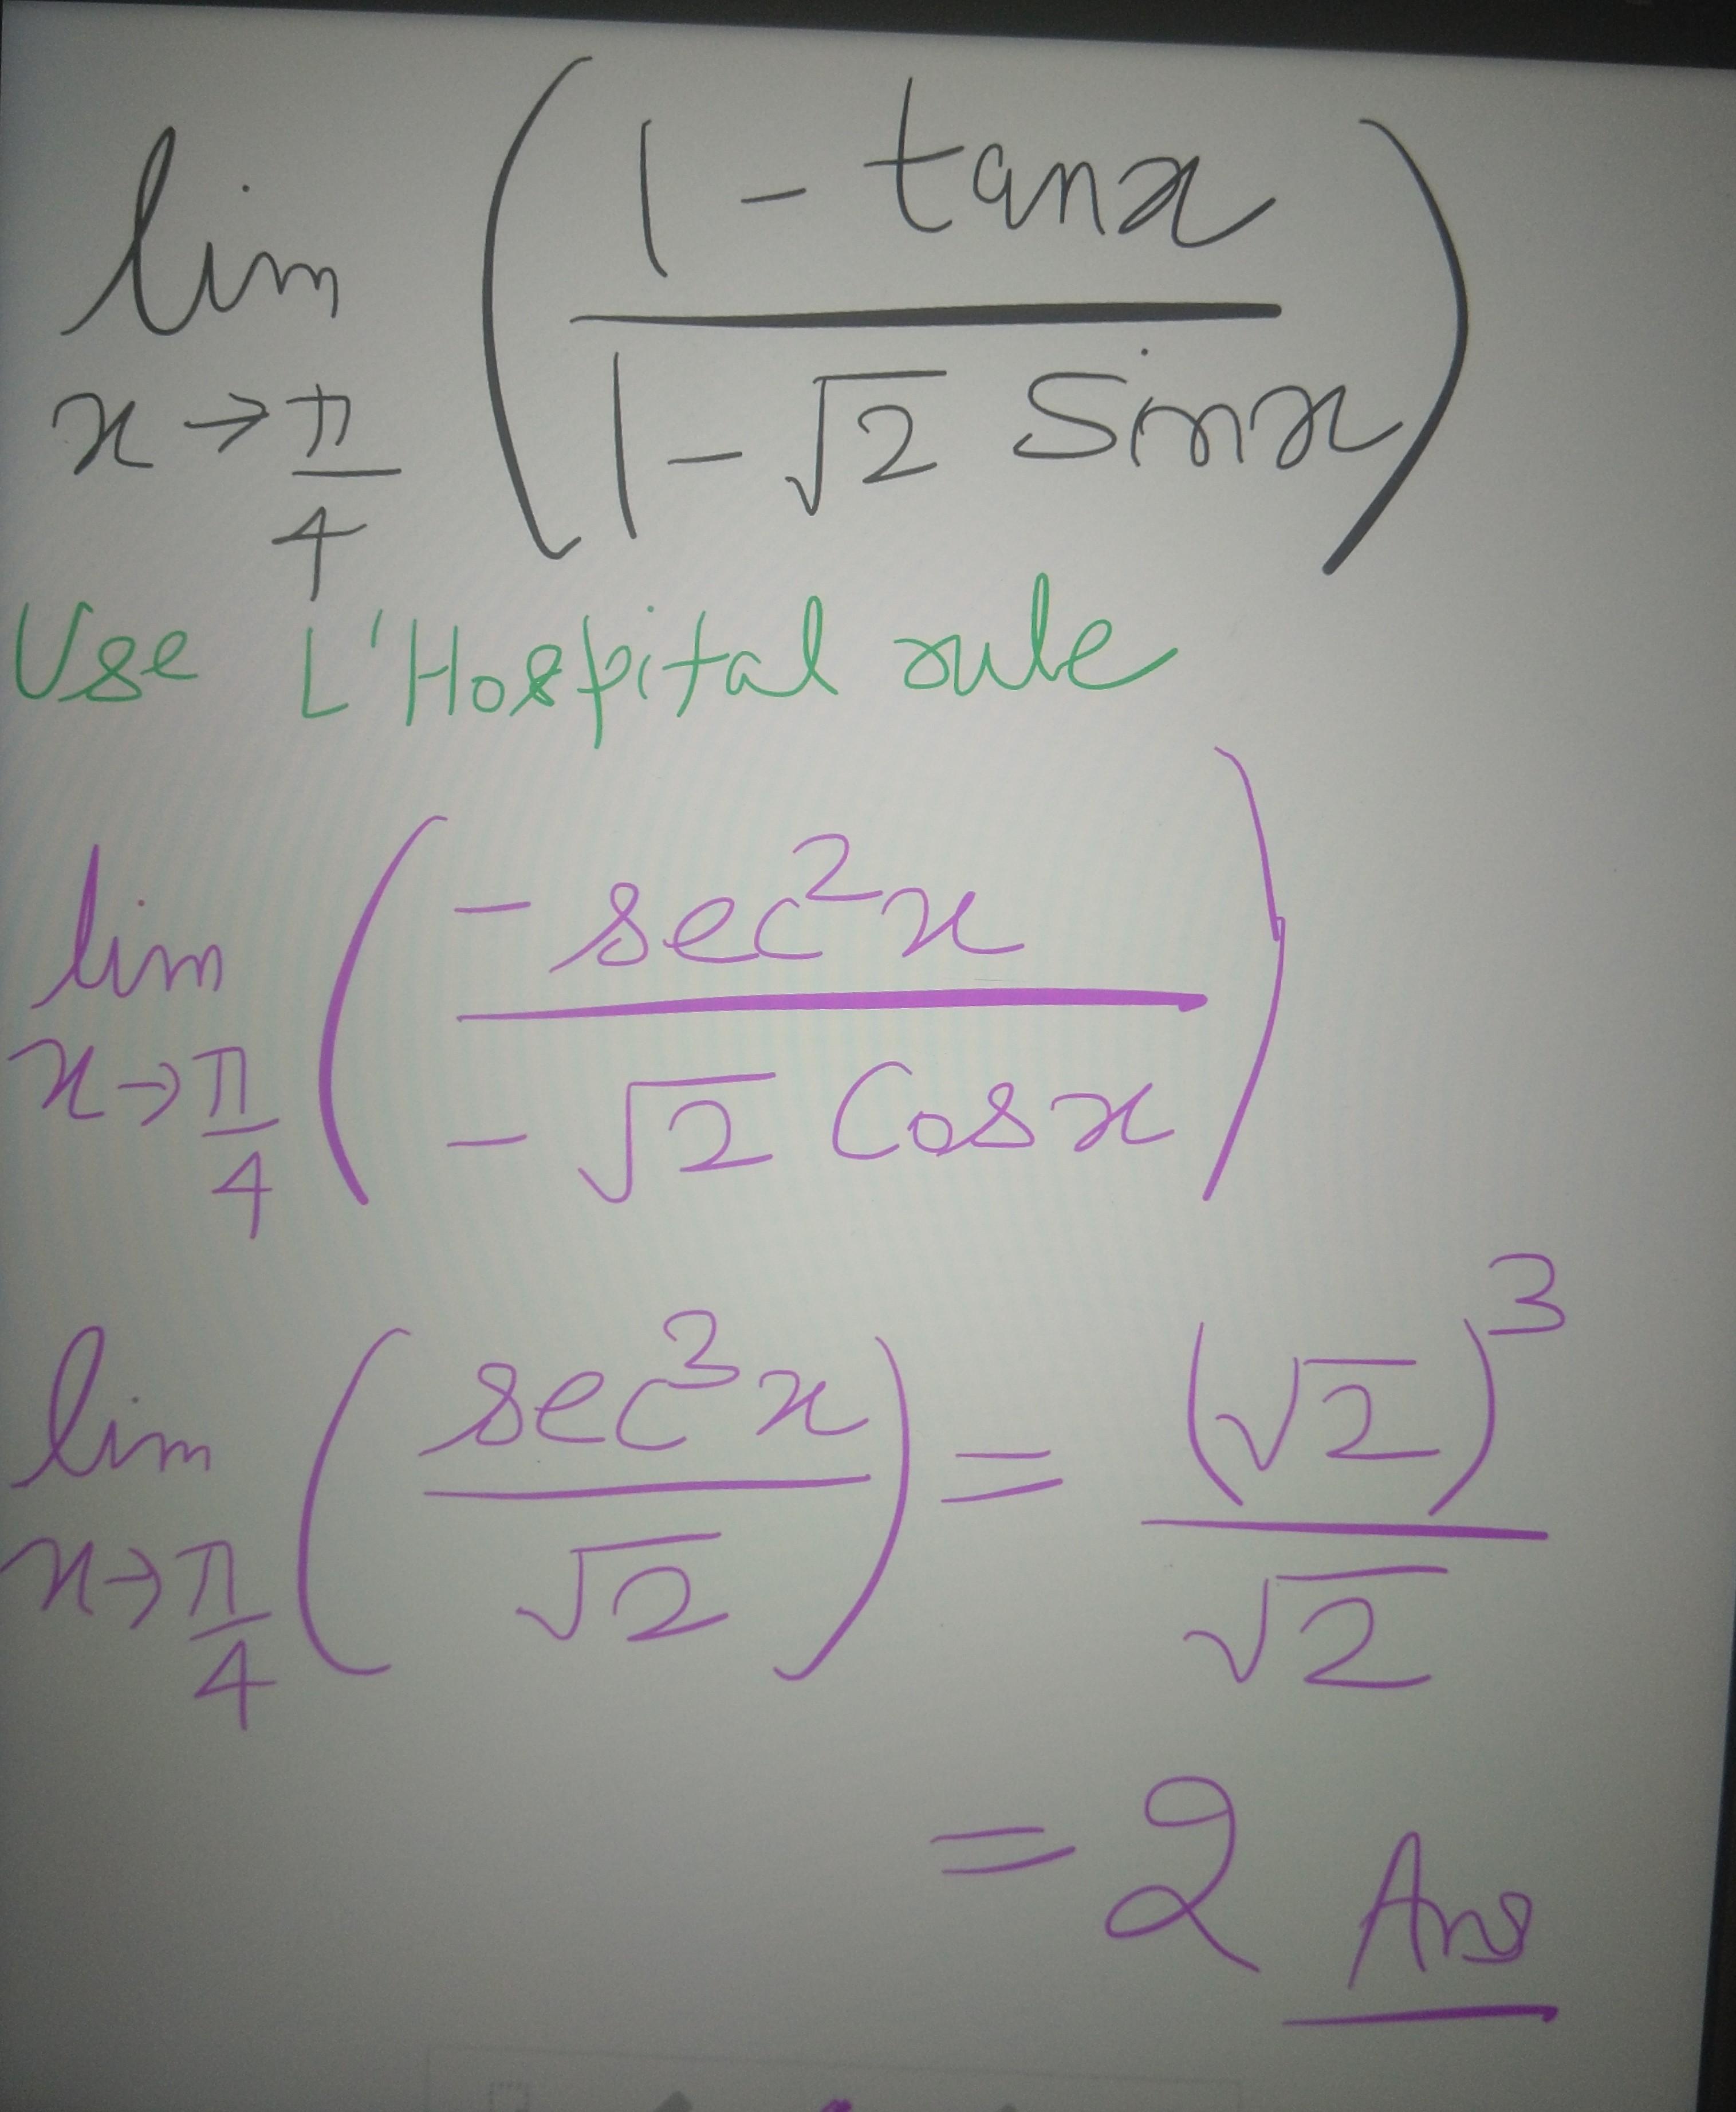 lim x→π/4 ( (1 - tanx) / (1 - √2 Sinx) )
Use L'Hospital rule
lim x→π/4 ( (-sec²x) / (-√2 Cosx) )
lim x→π/4 ( sec³x / √2 ) = (√2)³ / √2
= 2 Ans